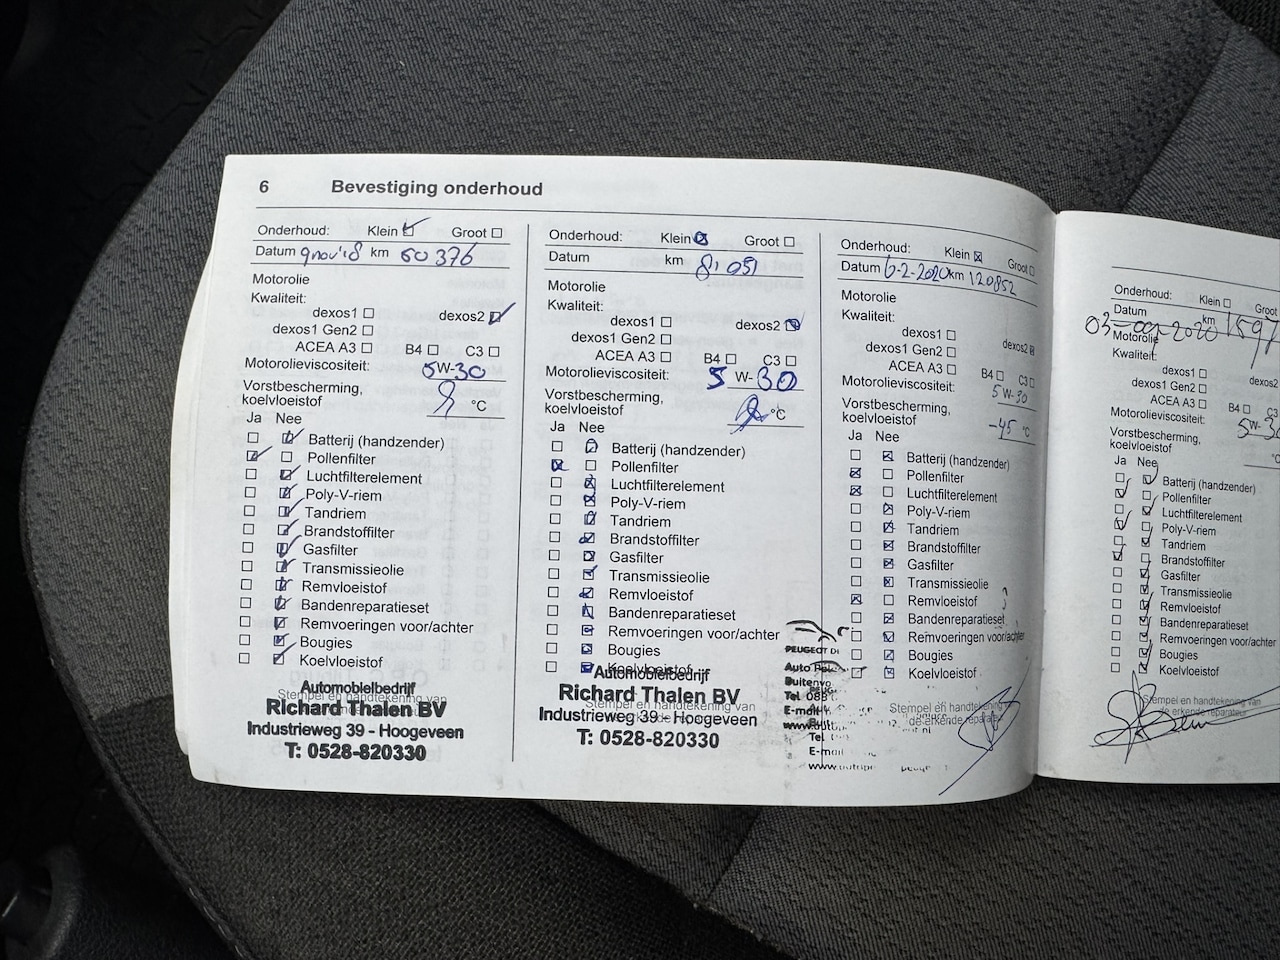 6 Bevestiging onderhoud
Onderhoud: Klein Groot
Datum 9 nov '18 km 60 376
Motorolie
Kwaliteit:
dexos1 dexos2
dexos1 Gen2
ACEA A3 B4 C3
Motorolieviscositeit: 5W-30
Vorstbescherming,
koelvloeistof °C
Ja Nee
Batterij (handzender)
Pollenfilter
Luchtfilterelement
Poly-V-riem
Tandriem
Brandstoffilter
Gasfilter
Transmissieolie
Remvloeistof
Bandenreparatieset
Remvoeringen voor/achter
Bougies
Koelvloeistof
Stempel en handtekening van
Automobielbedrijf
Richard Thalen BV
Industrieweg 39 - Hoogeveen
T: 0528-820330
Onderhoud: Klein Groot
Datum km 81 051
Motorolie
Kwaliteit:
dexos1 dexos2
dexos1 Gen2
ACEA A3 B4 C3
Motorolieviscositeit: 5 W-30
Vorstbescherming,
koelvloeistof °C
Ja Nee
Batterij (handzender)
Pollenfilter
Luchtfilterelement
Poly-V-riem
Tandriem
Brandstoffilter
Gasfilter
Transmissieolie
Remvloeistof
Bandenreparatieset
Remvoeringen voor/achter
Bougies
Koelvloeistof
Automobielbedrijf
Richard Thalen BV
Industrieweg 39 - Hoogeveen
T: 0528-820330
Onderhoud: Klein Groot
Datum 6-2-2020 km 120852
Motorolie
Kwaliteit:
dexos1
dexos1 Gen2 dexos2
ACEA A3 B4 C3
Motorolieviscositeit: 5W-30
Vorstbescherming,
koelvloeistof -45 °C
Ja Nee
Batterij (handzender)
Pollenfilter
Luchtfilterelement
Poly-V-riem
Tandriem
Brandstoffilter
Gasfilter
Transmissieolie
Remvloeistof
Bandenreparatieset
Remvoeringen voor/achter
Bougies
Koelvloeistof
Stempel en handtekening van
de erkende reparateur
PEUGEOT
Auto
Tel
E-mail
www.
Tel.
E-mail
www.
Onderhoud: Klein Groot
Datum km
Motorolie
Kwaliteit:
dexos1 dexos2
dexos1 Gen2
ACEA A3 B4
Motorolieviscositeit: 5W-30
Vorstbescherming,
koelvloeistof °C
Ja Nee
Batterij (handzender)
Pollenfilter
Luchtfilterelement
Poly-V-riem
Tandriem
Brandstoffilter
Gasfilter
Transmissieolie
Remvloeistof
Bandenreparatieset
Remvoeringen voor/achter
Bougies
Koelvloeistof
Stempel en handtekening van
de erkende reparateur